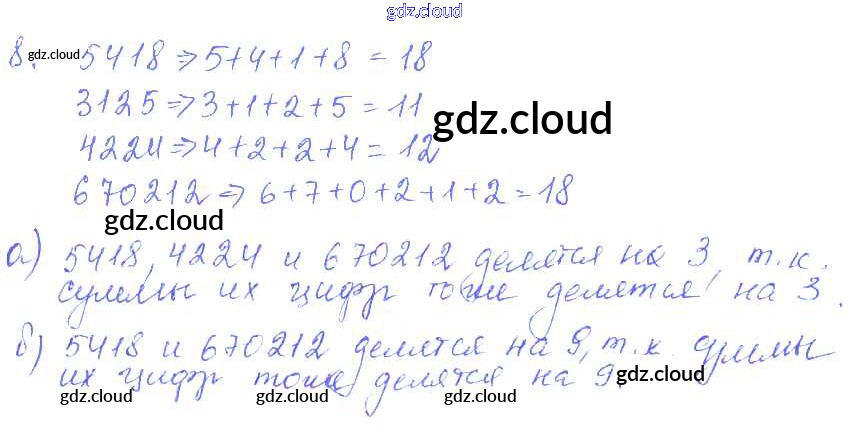 gdz.cloud
8. gdz.cloud 5418 => 5+4+1+8 = 18
3125 => 3+1+2+5 = 11
gdz.cloud
4224 => 4+2+2+4 = 12
670212 => 6+7+0+2+1+2 = 18
gdz.cloud
а) 5418, 4224 и 670212 делятся на 3, т.к.
суммы их цифр тоже делятся на 3.
б) 5418 и 670212 делятся на 9, т.к. суммы
их цифр тоже делятся на 9.
gdz.cloud
gdz.cloud gdz.cloud gdz.cloud